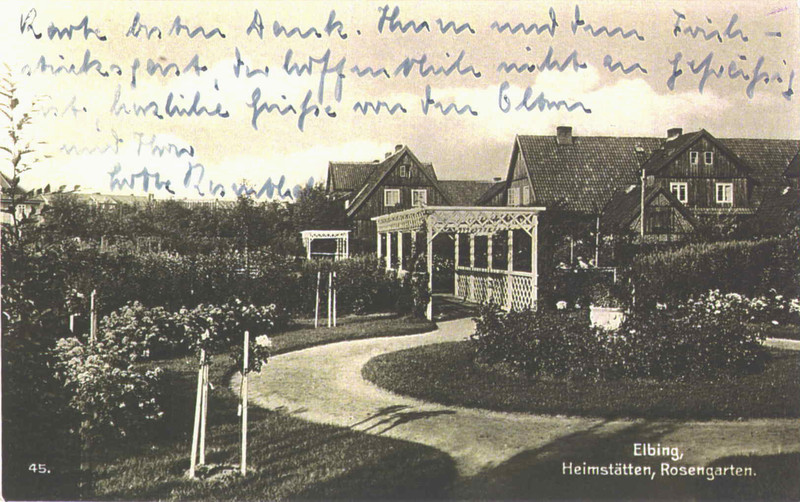 Karte besten Dank. Ihnen und dem Früh-
stücksgeist, der hoffentlich nicht am
ist, herzliche Grüsse von den Eltern
und Ihrer
Lotte Rosen
45.
Elbing,
Heimstätten, Rosengarten.